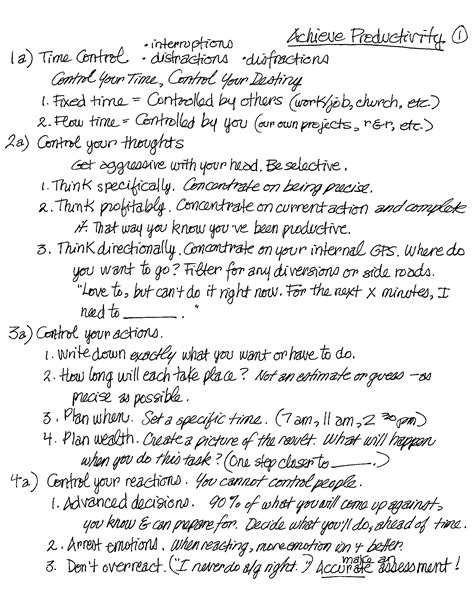 Achieve Productivity ①
• interruptions
1a) Time Control • distractions • disfractions
Control Your Time, Control Your Destiny
1. Fixed time = Controlled by others (work/job, church, etc.)
2. Flow time = Controlled by you (our own projects, r&r, etc.)
2a) Control your thoughts
Get aggressive with your head. Be selective.
1. Think specifically. Concentrate on being precise.
2. Think profitably. Concentrate on current action and complete
it. That way you know you've been productive.
3. Think directionally. Concentrate on your internal GPS. Where do
you want to go? Filter for any diversions or side roads.
"Love to, but can't do it right now. For the next X minutes, I
need to ______."
3a) Control your actions.
1. Write down exactly what you want or have to do.
2. How long will each take place? Not an estimate or guess – as
precise as possible.
3. Plan when. Set a specific time. (7am, 11am, 2 30 pm)
4. Plan wealth. Create a picture of the result. What will happen
when you do this task? (One step closer to _____.)
4a) Control your reactions. You cannot control people.
1. Advanced decisions. 90% of what you will come up against,
you know & can prepare for. Decide what you'll do, ahead of time.
2. Arrest emotions. When reacting, more emotion isn't better.
3. Don't overreact. ("I never do a/g right.") make an Accurate assessment!